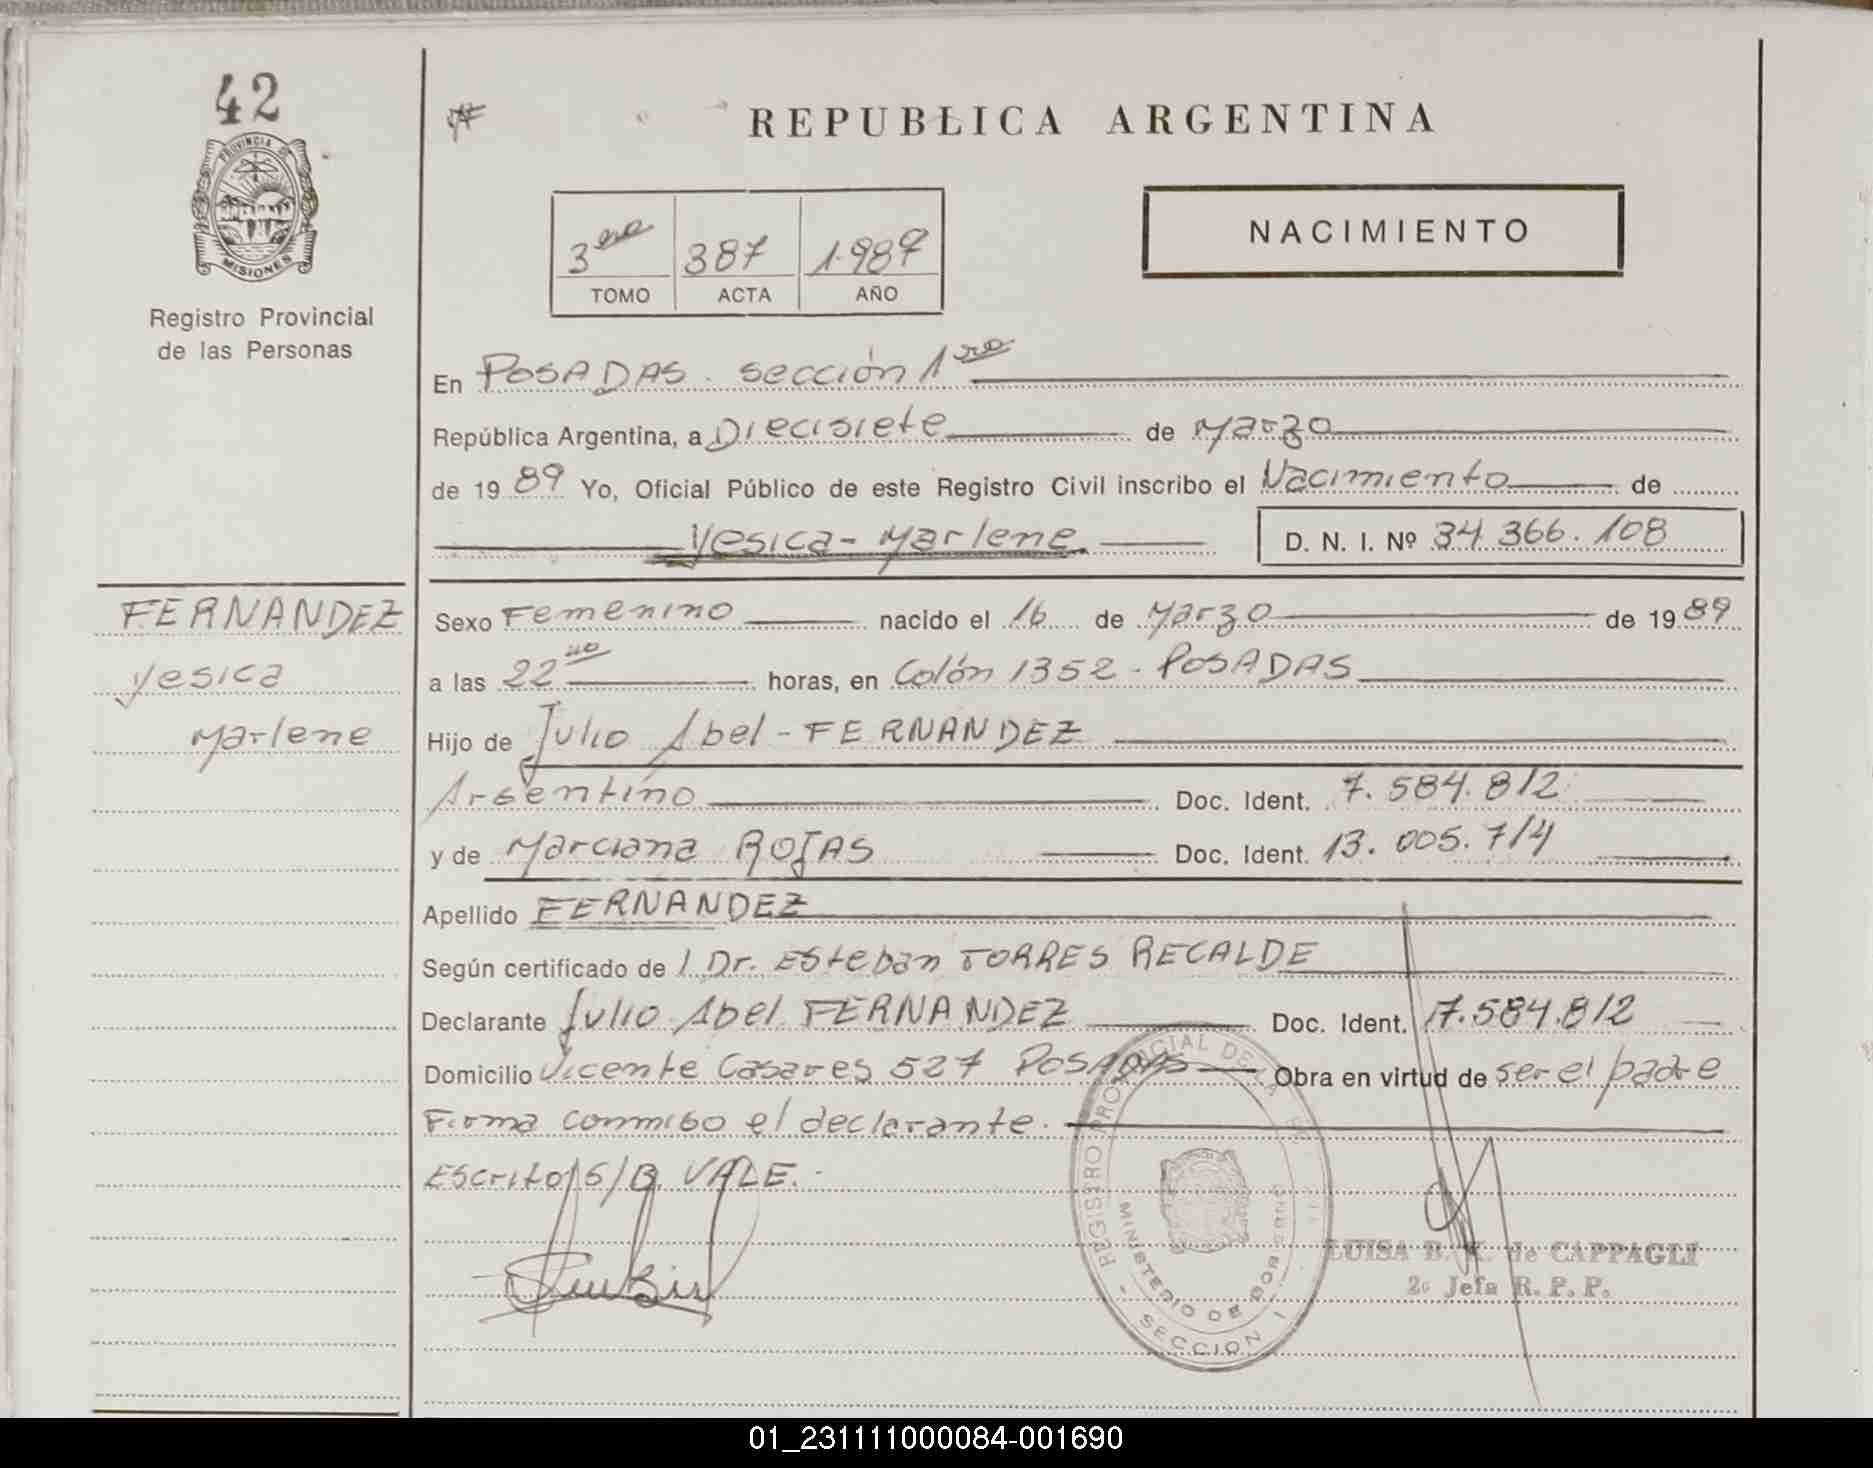 42
PROVINCIA DE
MISIONES
Registro Provincial
de las Personas
REPUBLICA ARGENTINA
3era 387 1.989
TOMO ACTA AÑO
NACIMIENTO
En POSADAS. sección 1ra
República Argentina, a Diecisiete de Marzo
de 1989 Yo, Oficial Público de este Registro Civil inscribo el Nacimiento de
Yesica - Marlene D. N. I. Nº 34.366.108
FERNANDEZ
Yesica
Marlene
Sexo Femenino nacido el 16 de Marzo de 1989
a las 22 horas, en Colón 1352 - POSADAS
Hijo de Julio Abel - FERNANDEZ
Argentino Doc. Ident. 7.584.812
y de Marciana ROJAS Doc. Ident. 13.005.714
Apellido FERNANDEZ
Según certificado de l Dr. Esteban TORRES RECALDE
Declarante Julio Abel FERNANDEZ Doc. Ident. 7.584.812
Domicilio Vicente Casares 527 POSADAS Obra en virtud de ser el padre
Firma conmigo el declarante.
Escrito S/B. VALE.
REGISTRO PROVINCIAL DE LAS
MINISTERIO DE GOBIERNO
- SECCION I
LUISA B. K. de CAPPAGLI
2º Jefa R. P. P.
01_231111000084-001690